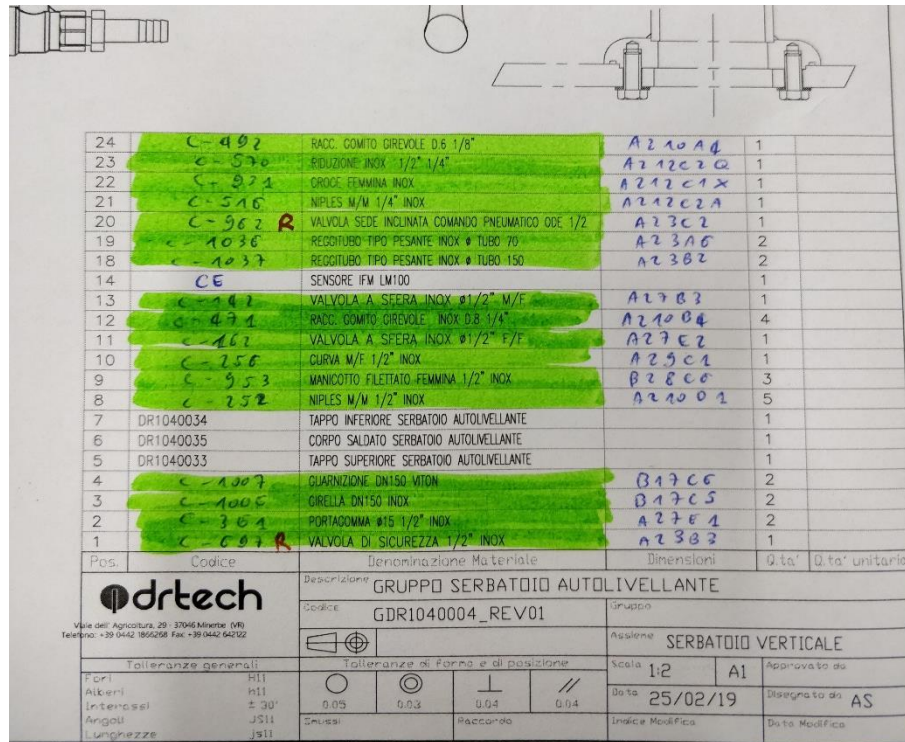 24 C-492 RACC. GOMITO GIREVOLE D.6 1/8" A210A4 1
23 C-570 RIDUZIONE INOX 1/2" 1/4" A212C2Q 1
22 C-971 CROCE FEMMINA INOX A212C1X 1
21 C-516 NIPLES M/M 1/4" INOX A212C2A 1
20 C-962 R VALVOLA SEDE INCLINATA COMANDO PNEUMATICO ODE 1/2 A23C2 1
19 C-1036 REGGITUBO TIPO PESANTE INOX ø TUBO 70 A23A6 2
18 C-1037 REGGITUBO TIPO PESANTE INOX ø TUBO 150 A23B2 2
14 CE SENSORE IFM LM100 1
13 C-142 VALVOLA A SFERA INOX ø1/2" M/F A27B3 1
12 C-471 RACC. GOMITO GIREVOLE INOX D.8 1/4" A210B4 4
11 C-162 VALVOLA A SFERA INOX ø1/2" F/F A27E2 1
10 C-256 CURVA M/F 1/2" INOX A29C1 1
9 C-953 MANICOTTO FILETTATO FEMMINA 1/2" INOX B28C6 3
8 C-252 NIPLES M/M 1/2" INOX A210D1 5
7 DR1040034 TAPPO INFERIORE SERBATOIO AUTOLIVELLANTE 1
6 DR1040035 CORPO SALDATO SERBATOIO AUTOLIVELLANTE 1
5 DR1040033 TAPPO SUPERIORE SERBATOIO AUTOLIVELLANTE 1
4 C-1007 GUARNIZIONE DN150 VITON B17C6 2
3 C-1006 GIRELLA DN150 INOX B17C5 2
2 C-361 PORTAGOMMA ø15 1/2" INOX A27E1 2
1 C-697 R VALVOLA DI SICUREZZA 1/2" INOX A23B3 1
Pos. Codice Denominazione Materiale Dimensioni Q.ta' Q.ta' unitaria
drtech
Viale dell' Agricoltura, 29 - 37046 Minerbe (VR)
Telefono: +39 0442 1866268 Fax: +39 0442 642122
Descrizione GRUPPO SERBATOIO AUTOLIVELLANTE
Codice GDR1040004_REV01
Gruppo
Assieme SERBATOIO VERTICALE
Scala 1:2 A1 Approvato da
Data 25/02/19 Disegnato da AS
Indice Modifica Data Modifica
Tolleranze generali
Fori H11
Alberi h11
Interassi ± 30'
Angoli JS11
Lunghezze js11
Tolleranze di forma e di posizione
0.05 0.03 0.04 0.04
Smussi Raccordo